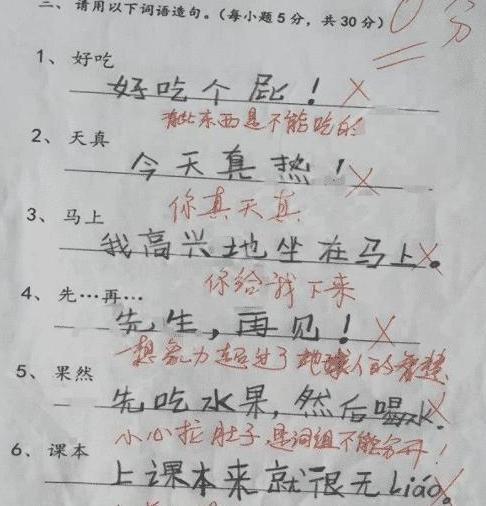 二、请用以下词语造句。（每小题5分，共30分）
0分
1、好吃
好吃个屁！
有些东西是不能吃的
2、天真
今天真热！
你真天真
3、马上
我高兴地坐在马上。
你给我下来
4、先…再…
先生，再见！
想象力超过了地球人的智慧
5、果然
先吃水果，然后喝水.
小心拉肚子 是词组不能分开！
6、课本
上课本来就很无Liáo。